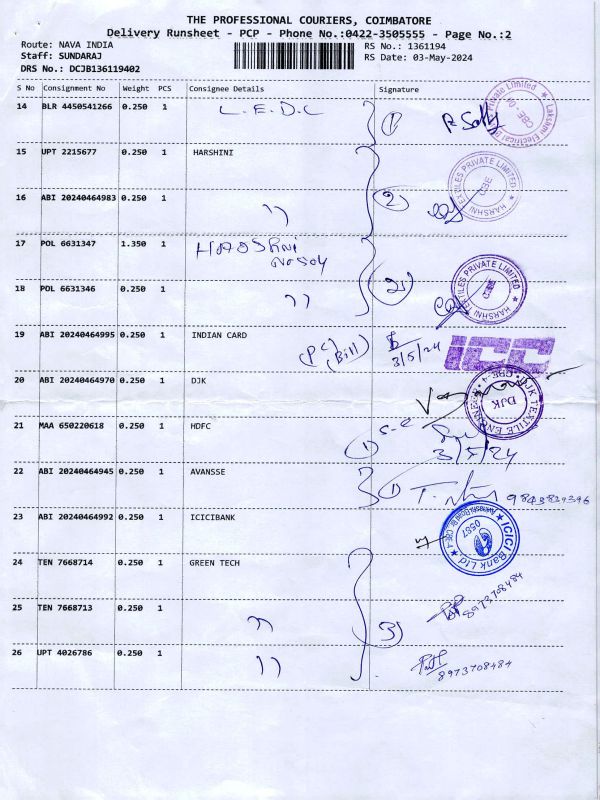 THE PROFESSIONAL COURIERS, COIMBATORE
Delivery Runsheet - PCP - Phone No.:0422-3505555 - Page No.:2
Route: NAVA INDIA RS No.: 1361194
Staff: SUNDARAJ RS Date: 03-May-2024
DRS No.: DCJB136119402
S No Consignment No Weight PCS Consignee Details Signature
14 BLR 4450541266 0.250 1 L.E.D.C 1
Lakshmi Electrical Private Limited CBE - 04
15 UPT 2215677 0.250 1 HARSHINI
HARSHNI TEXTILES PRIVATE LIMITED CBE
16 ABI 20240464983 0.250 1 " 2
17 POL 6631347 1.350 1
HARSHNI TEXTILES PRIVATE LIMITED CBE
18 POL 6631346 0.250 1 " 2
19 ABI 20240464995 0.250 1 INDIAN CARD (PC) (Bill) 3/5/24 ICC
20 ABI 20240464970 0.250 1 DJK
DJK TEXTILE ENGINEERS CBE-4 DJK
21 MAA 650220618 0.250 1 HDFC 1 3/5/24
22 ABI 20240464945 0.250 1 AVANSSE 1
23 ABI 20240464992 0.250 1 ICICIBANK
ICICI Bank Ltd 0567
24 TEN 7668714 0.250 1 GREEN TECH
8973708484
25 TEN 7668713 0.250 1 " 3
26 UPT 4026786 0.250 1 "
8973708484